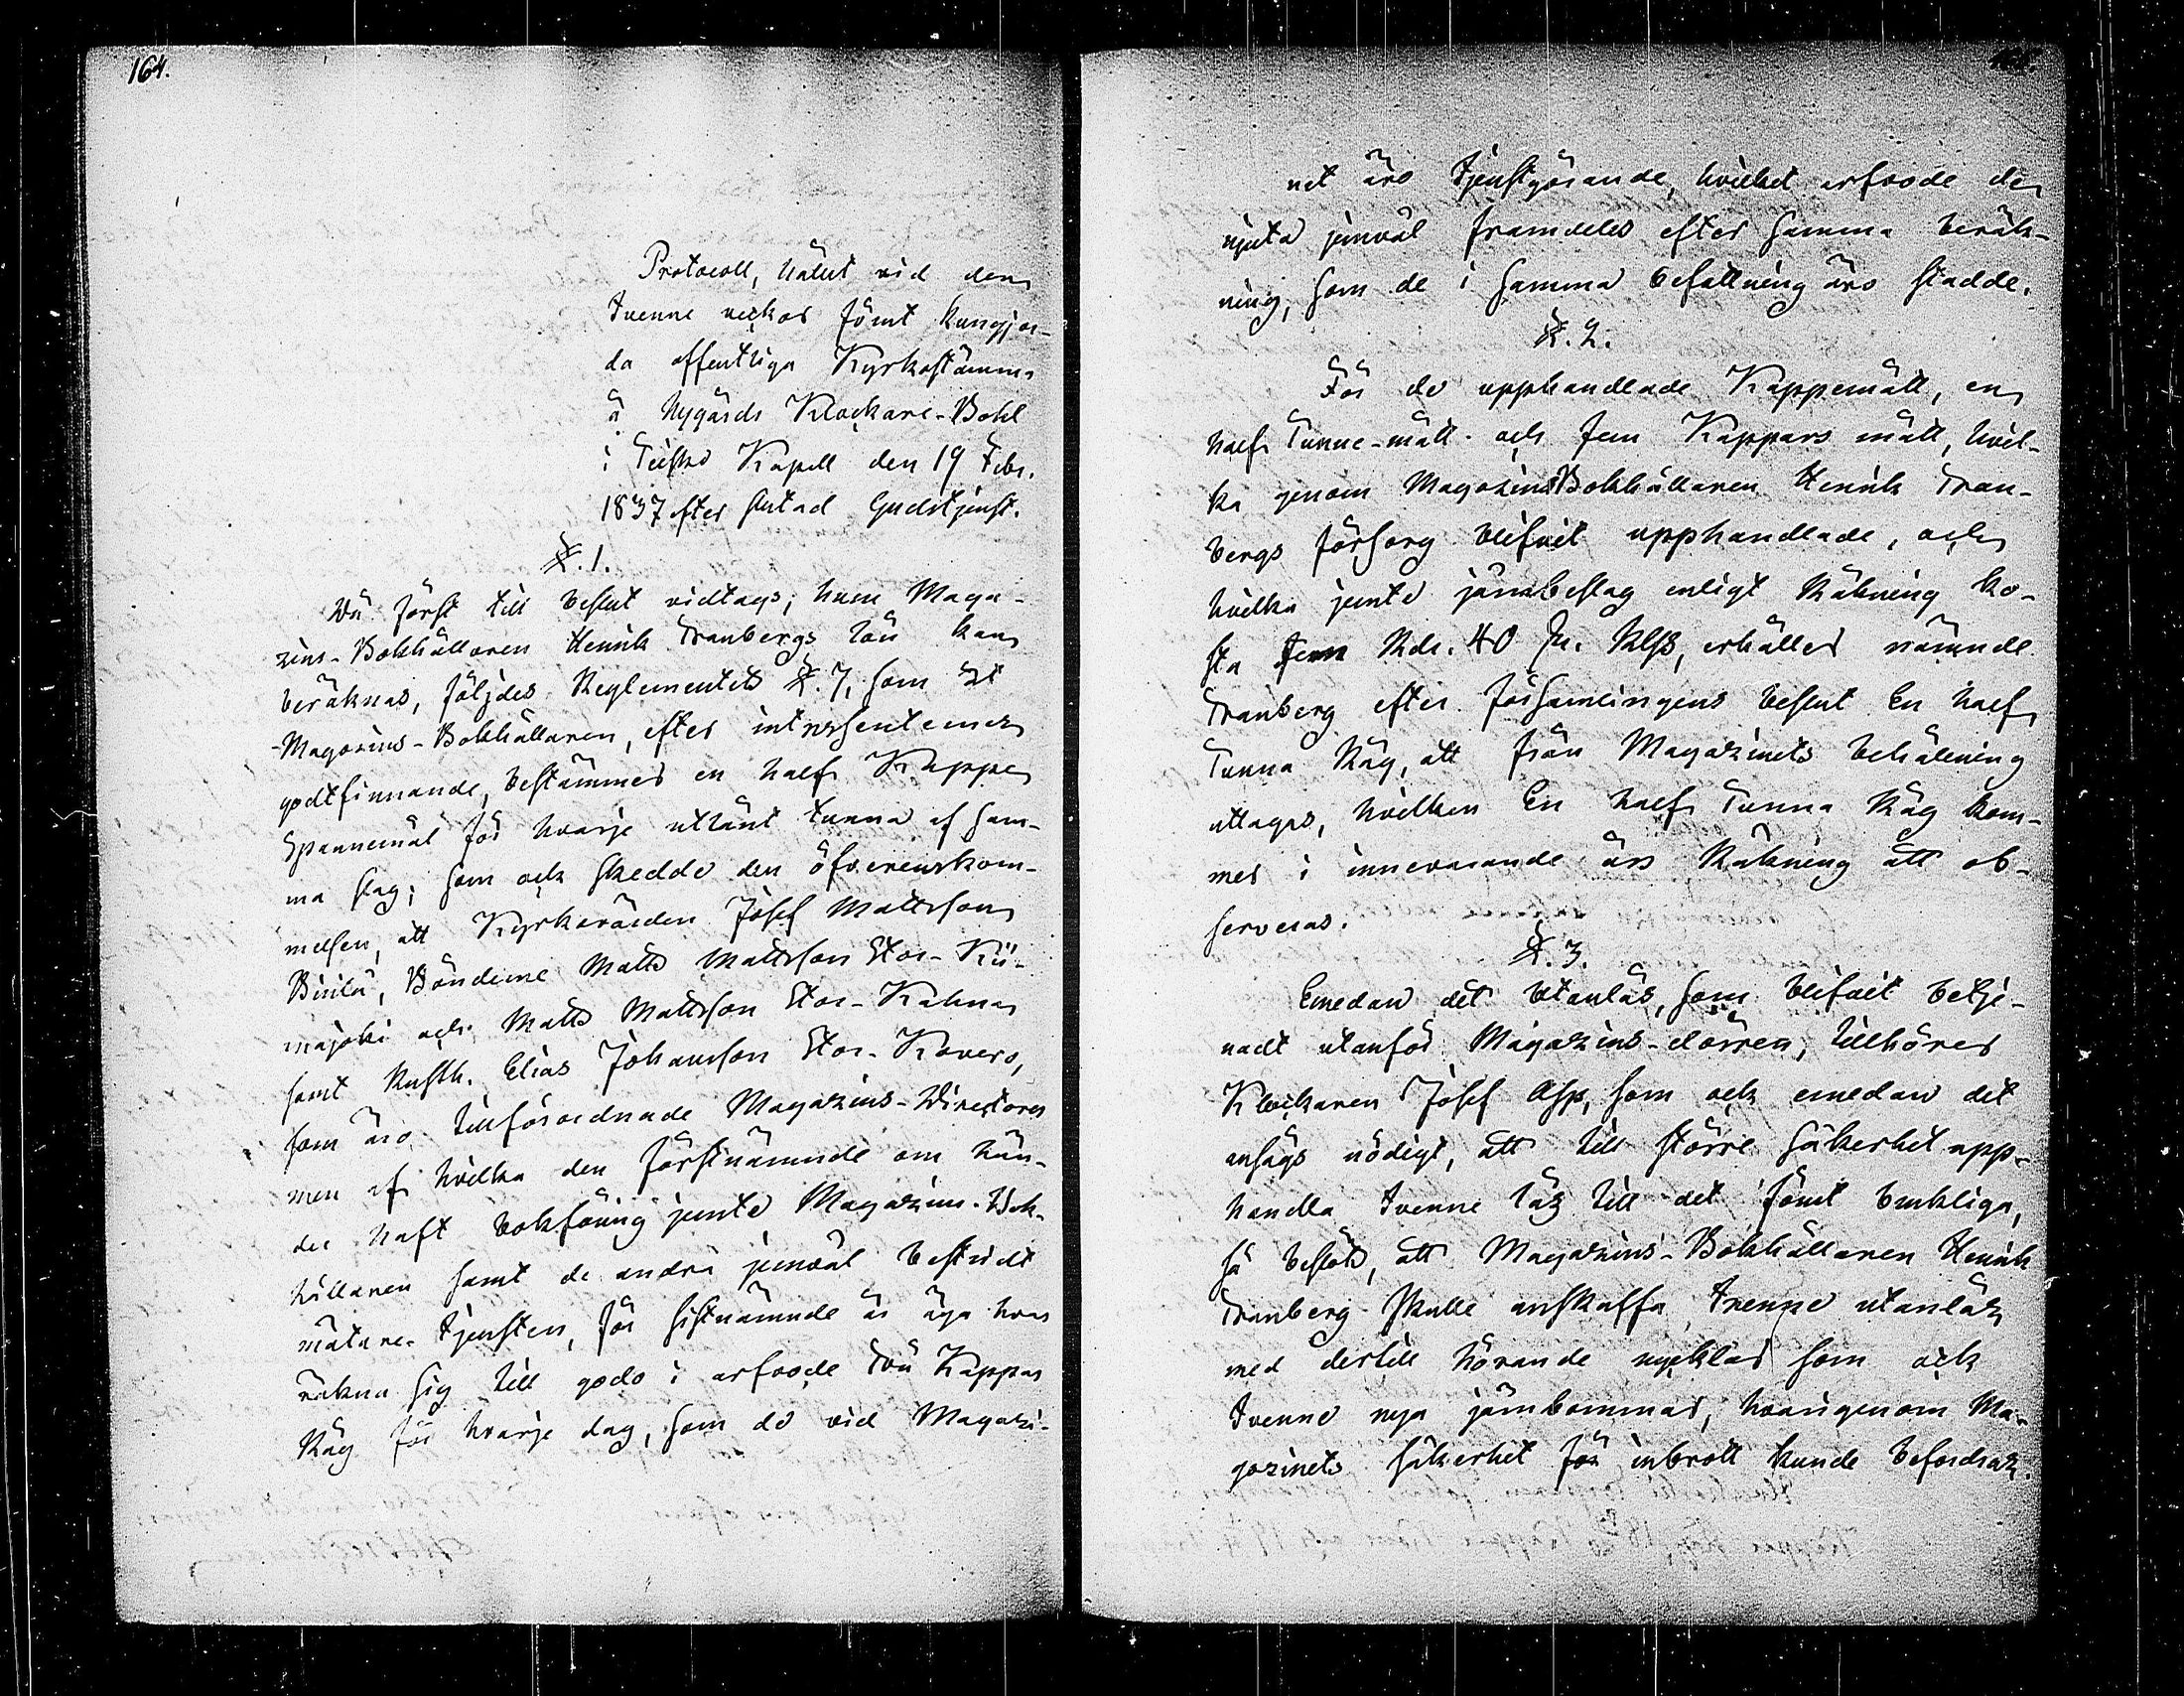 164.
Protocoll, hållit vid den
tvenne veckor förut kungjor-
da offentliga Kyrkostämma
å Nygårds Klockare-Bohl
i Teisko Kapell den 19 Febr.
1837 efter slutad Gudstjenst.
§. 1.
Då först till beslut vidtogs, huru Maga-
zins-Bokhållaren Henrik Tranbergs lön kan
beräknas, följdes Reglementets §. 7, som åt
Magazins-Bokhållaren, efter intressenternas
godtfinnande, bestämmer en half Kappe
Spannemål för hvarje utlånt tunna af sam-
ma slag; som ock skedde den öfverenskom-
melsen, att Kyrkovärden Josef Mattsson
Bönderne Matts Mattsson Stor-Kii-
majoki och Matts Mattsson Stor-Kulma
samt Rusth. Elias Johansson Stor-Kovero,
som äro tillförordnade Magazins-Directorer
men af hvilka den förstnämnde om hän-
der haft bokföring jemte Magazins-Bok-
hållaren samt de andra jemväl bestridt
mätare-tjensten, för sistnämnde år äga hvar
räkna sig till godo i arfvode Två Kappar
Råg för hvarje dag, som de vid Magazi-
net äro tjenstgörande, hvilket arfvode de
njuta jemväl framdeles efter samma beräk-
ning, som de i samma befattning äro stadde.
§. 2.
För de upphandlade Kappemått, en
half Tunne-mått och fem Kappars mått, hvil-
ka genom Magazins Bokhållaren Henrik Tran-
bergs försorg blifvit upphandlade, och
hvilka jemte järnbeslag enligt Räkning ko-
sta Fem Rdr. 40 sk. Rgs, erhåller nämnde
Tranberg efter Församlingens beslut En half
Tunna Råg, att från Magazinets behållning
uttagas, hvilken En half Tunna Råg kom-
mer i innevarande års Räkning att ob-
serveras.
§. 3.
Emedan det Utanlås, som blifvit betje-
nadt utanför Magazins-dörren, tillhörer
Klockaren Josef Asp, som ock emedan det
ansågs nödigt, att till större säkerhet upp-
handla tvenne lås till det förut brukliga,
så beslöts, att Magazins-Bokhållaren Henrik
Tranberg skulle anskaffa trenne utanlås
med dertill hörande nycklar som ock
tvenne nya järnbommar, hvarigenom Ma-
gazinets säkerhet för inbrott kunde befordras.